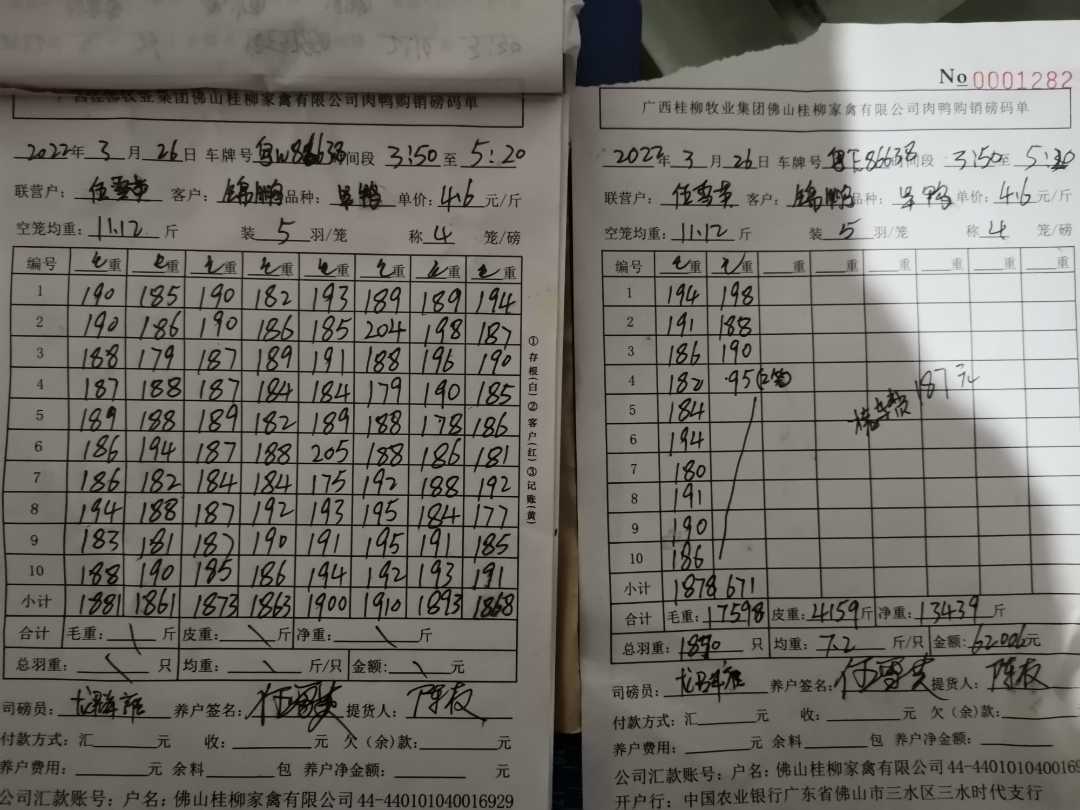 广西桂柳牧业集团佛山桂柳家禽有限公司肉鸭购销磅码单
2022年 3 月 26 日 车牌号 粤W86638 时间段 3:50 至 5:20
联营户: 任雪英 客户: 锦鹏 品种: 单价: 4.6 元/斤
空笼均重: 11.12 斤 装 5 羽/笼 称 4 笼/磅
编号 毛重 毛重 毛重 毛重 毛重 毛重 毛重 毛重
1 190 185 190 182 193 189 189 194
2 190 186 190 186 185 204 198 187
3 188 179 187 189 191 188 196 190
4 187 188 187 184 184 179 190 185
5 189 188 189 182 189 188 178 186
6 186 194 187 188 205 188 186 181
7 186 182 184 184 175 192 188 192
8 194 188 187 192 193 195 184 177
9 183 181 187 190 191 195 191 185
10 188 190 185 186 194 192 193 191
小计 1881 1861 1873 1863 1900 1910 1893 1868
合计 毛重: 斤 皮重: 斤 净重: 斤
总羽重: 只 均重: 斤/只 金额: 元
司磅员: 养户签名: 提货人: 陈友
付款方式: 汇 元 收: 元 欠(余)款: 元
养户费用: 元 余料 包 养户净金额: 元
公司汇款账号: 户名: 佛山桂柳家禽有限公司 44-440101040016929
①存根(白)②客户(红)③记账(黄)
No 0001282
广西桂柳牧业集团佛山桂柳家禽有限公司肉鸭购销磅码单
2022年 3 月 26 日 车牌号 86638 时间段 3:50 至 5:20
联营户: 任雪英 客户: 锦鹏 品种: 单价: 4.6 元/斤
空笼均重: 11.12 斤 装 5 羽/笼 称 4 笼/磅
编号 毛重 毛重 重 重 重 重 重 重
1 194 198
2 191 188
3 186 190
4 182 95(2笼)
5 184
6 194
7 180
8 191
9 190
10 186
187元
小计 1878 671
合计 毛重: 17598 皮重: 4159 斤 净重: 13439 斤
总羽重: 1870 只 均重: 7.2 斤/只 金额: 62006元
司磅员: 养户签名: 提货人: 陈友
付款方式: 汇 元 收: 元 欠(余)款:
养户费用: 元 余料 包 养户净金额:
公司汇款账号: 户名: 佛山桂柳家禽有限公司 44-4401010400169
开户行: 中国农业银行广东省佛山市三水区三水时代支行